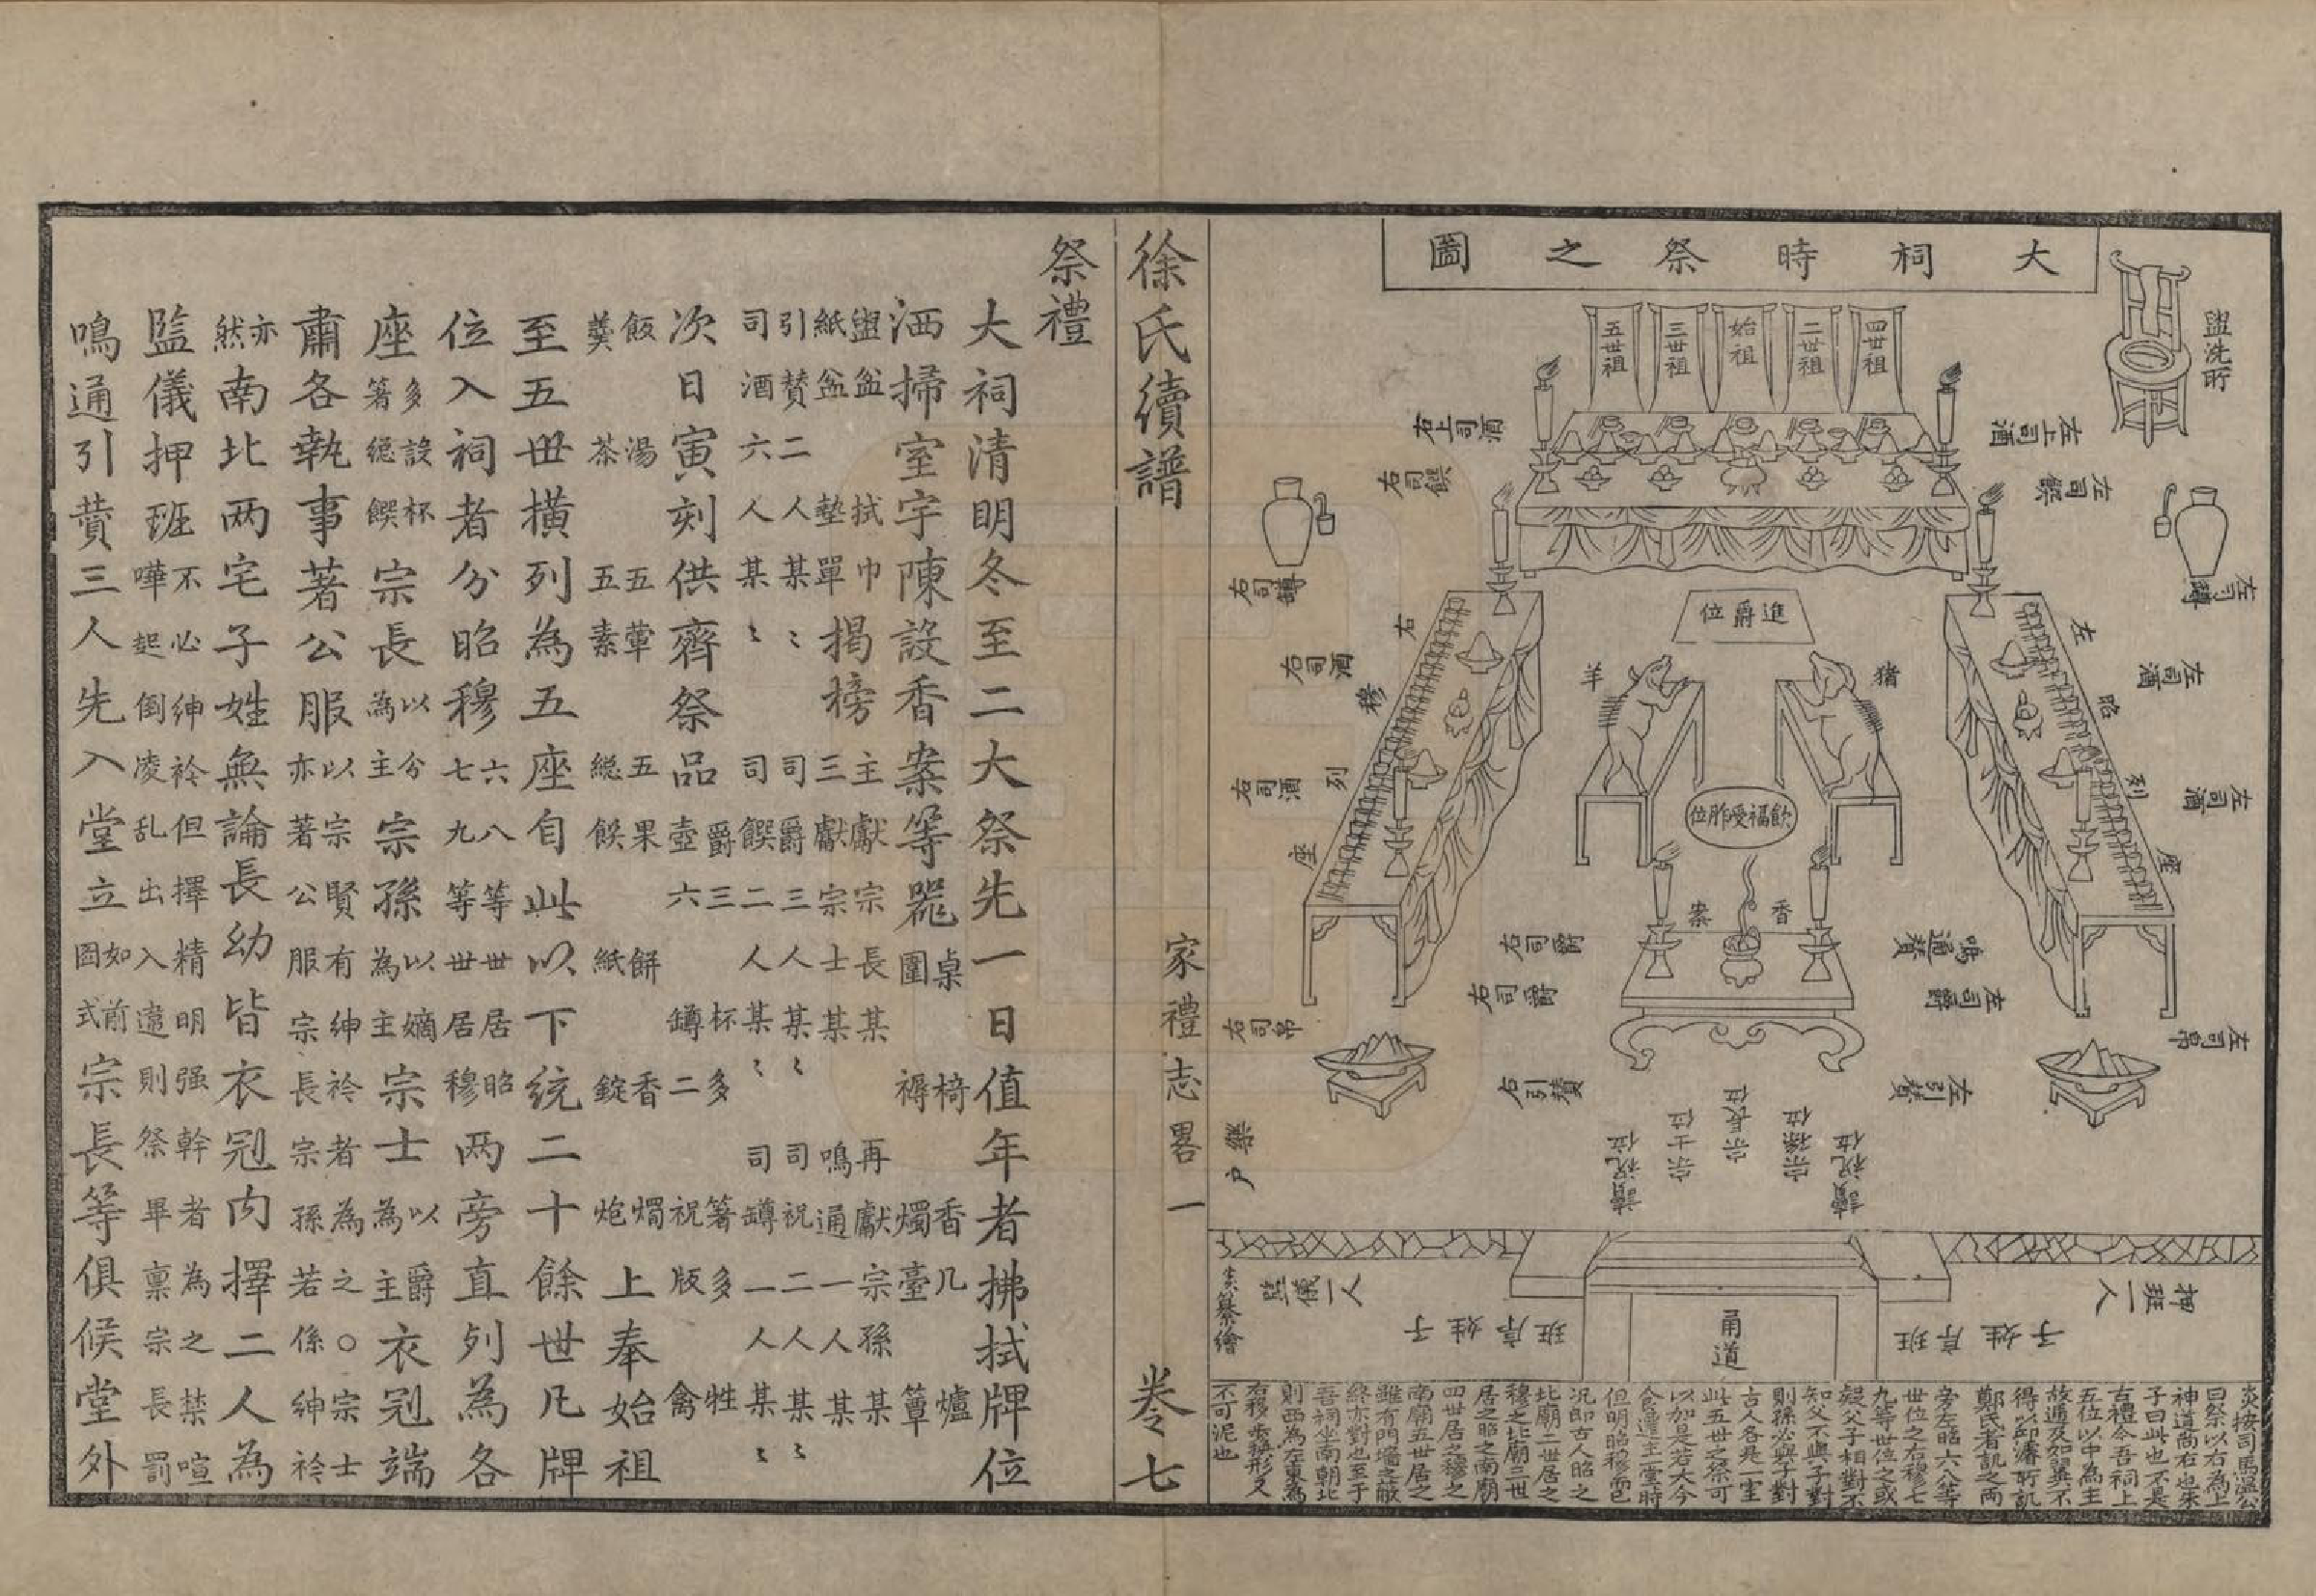 大祠時祭之圖
盥洗所
四世祖
二世祖
始祖
三世祖
五世祖
左上司酒
右上司酒
左司饌
右司饌
左司罇
右司罇
進爵位
猪
羊
左昭列座
右穆列座
左司酒
左司酒
右司酒
右司酒
飲福受胙位
香案
鳴通贊
右司爵
左司爵
右司爵
左司帛
右司帛
左引贊
右引贊
樂户
讀祝位
宗孫位
宗長位
宗士位
讀祝位
押班一人
監儀一人
子姓序班
子姓序班
甬道
炎纂繪
炎按司馬溫公
曰祭以右為上
神道尚右也朱
子曰此也不是
古禮今吾祠上
五位以中為主
故遞及如翼不
得以邱濬所訊
鄭氏者訊之兩
旁左昭六八等
世位之右穆七
九等世位之或
疑父子相對不
知父不與子對
則孫必與子對
古人各是一室
此五世之祭可
以加是若大今
食遷主一堂時
但明昭穆而已
况即古人昭之
北廟二世居之
穆之北廟三世
居之昭之南廟
四世居之穆之
南廟五世居之
雖有門墻之蔽
終亦對也至于
吾祠坐南朝北
則西為左東為
右移步換形又
不可泥也
徐氏續譜
家禮志畧一
卷七
祭禮
大祠清明冬至二大祭先一日值年者拂拭牌位
洒掃室宇陳設香案等器桌圍椅褥香几燭臺爐簟
盥盆紙盆拭巾墊單揭榜主獻宗長某再獻宗孫某三獻宗士某鳴通一人某
引贊二人某〻司爵三人某〻司祝二人某〻司酒六人某〻司饌二人某〻司罇一人某〻
次日寅刻供齊祭品爵三壺六杯多罇二箸多祝版牲禽
飯羹湯茶五葷五素五果總餱餅紙香錠燭炮上奉始祖
至五世橫列為五座自此以下統二十餘世凡牌
位入祠者分昭穆六八等世居昭七九等世居穆兩旁直列為各
座多設杯箸總饌宗長以分為主宗孫以嫡為主宗士以爵為主衣冠端
肅各執事著公服以宗賢有紳衿者為之○宗士亦著公服宗長宗孫若係紳衿
亦然南北两宅子姓無論長幼皆衣冠內擇二人為
監儀押班不必紳衿但擇精明强幹者為之禁喧嘩起倒凌乱出入遠則祭畢禀宗長罰
鳴通引贊三人先入堂立如前圖式宗長等俱候堂外